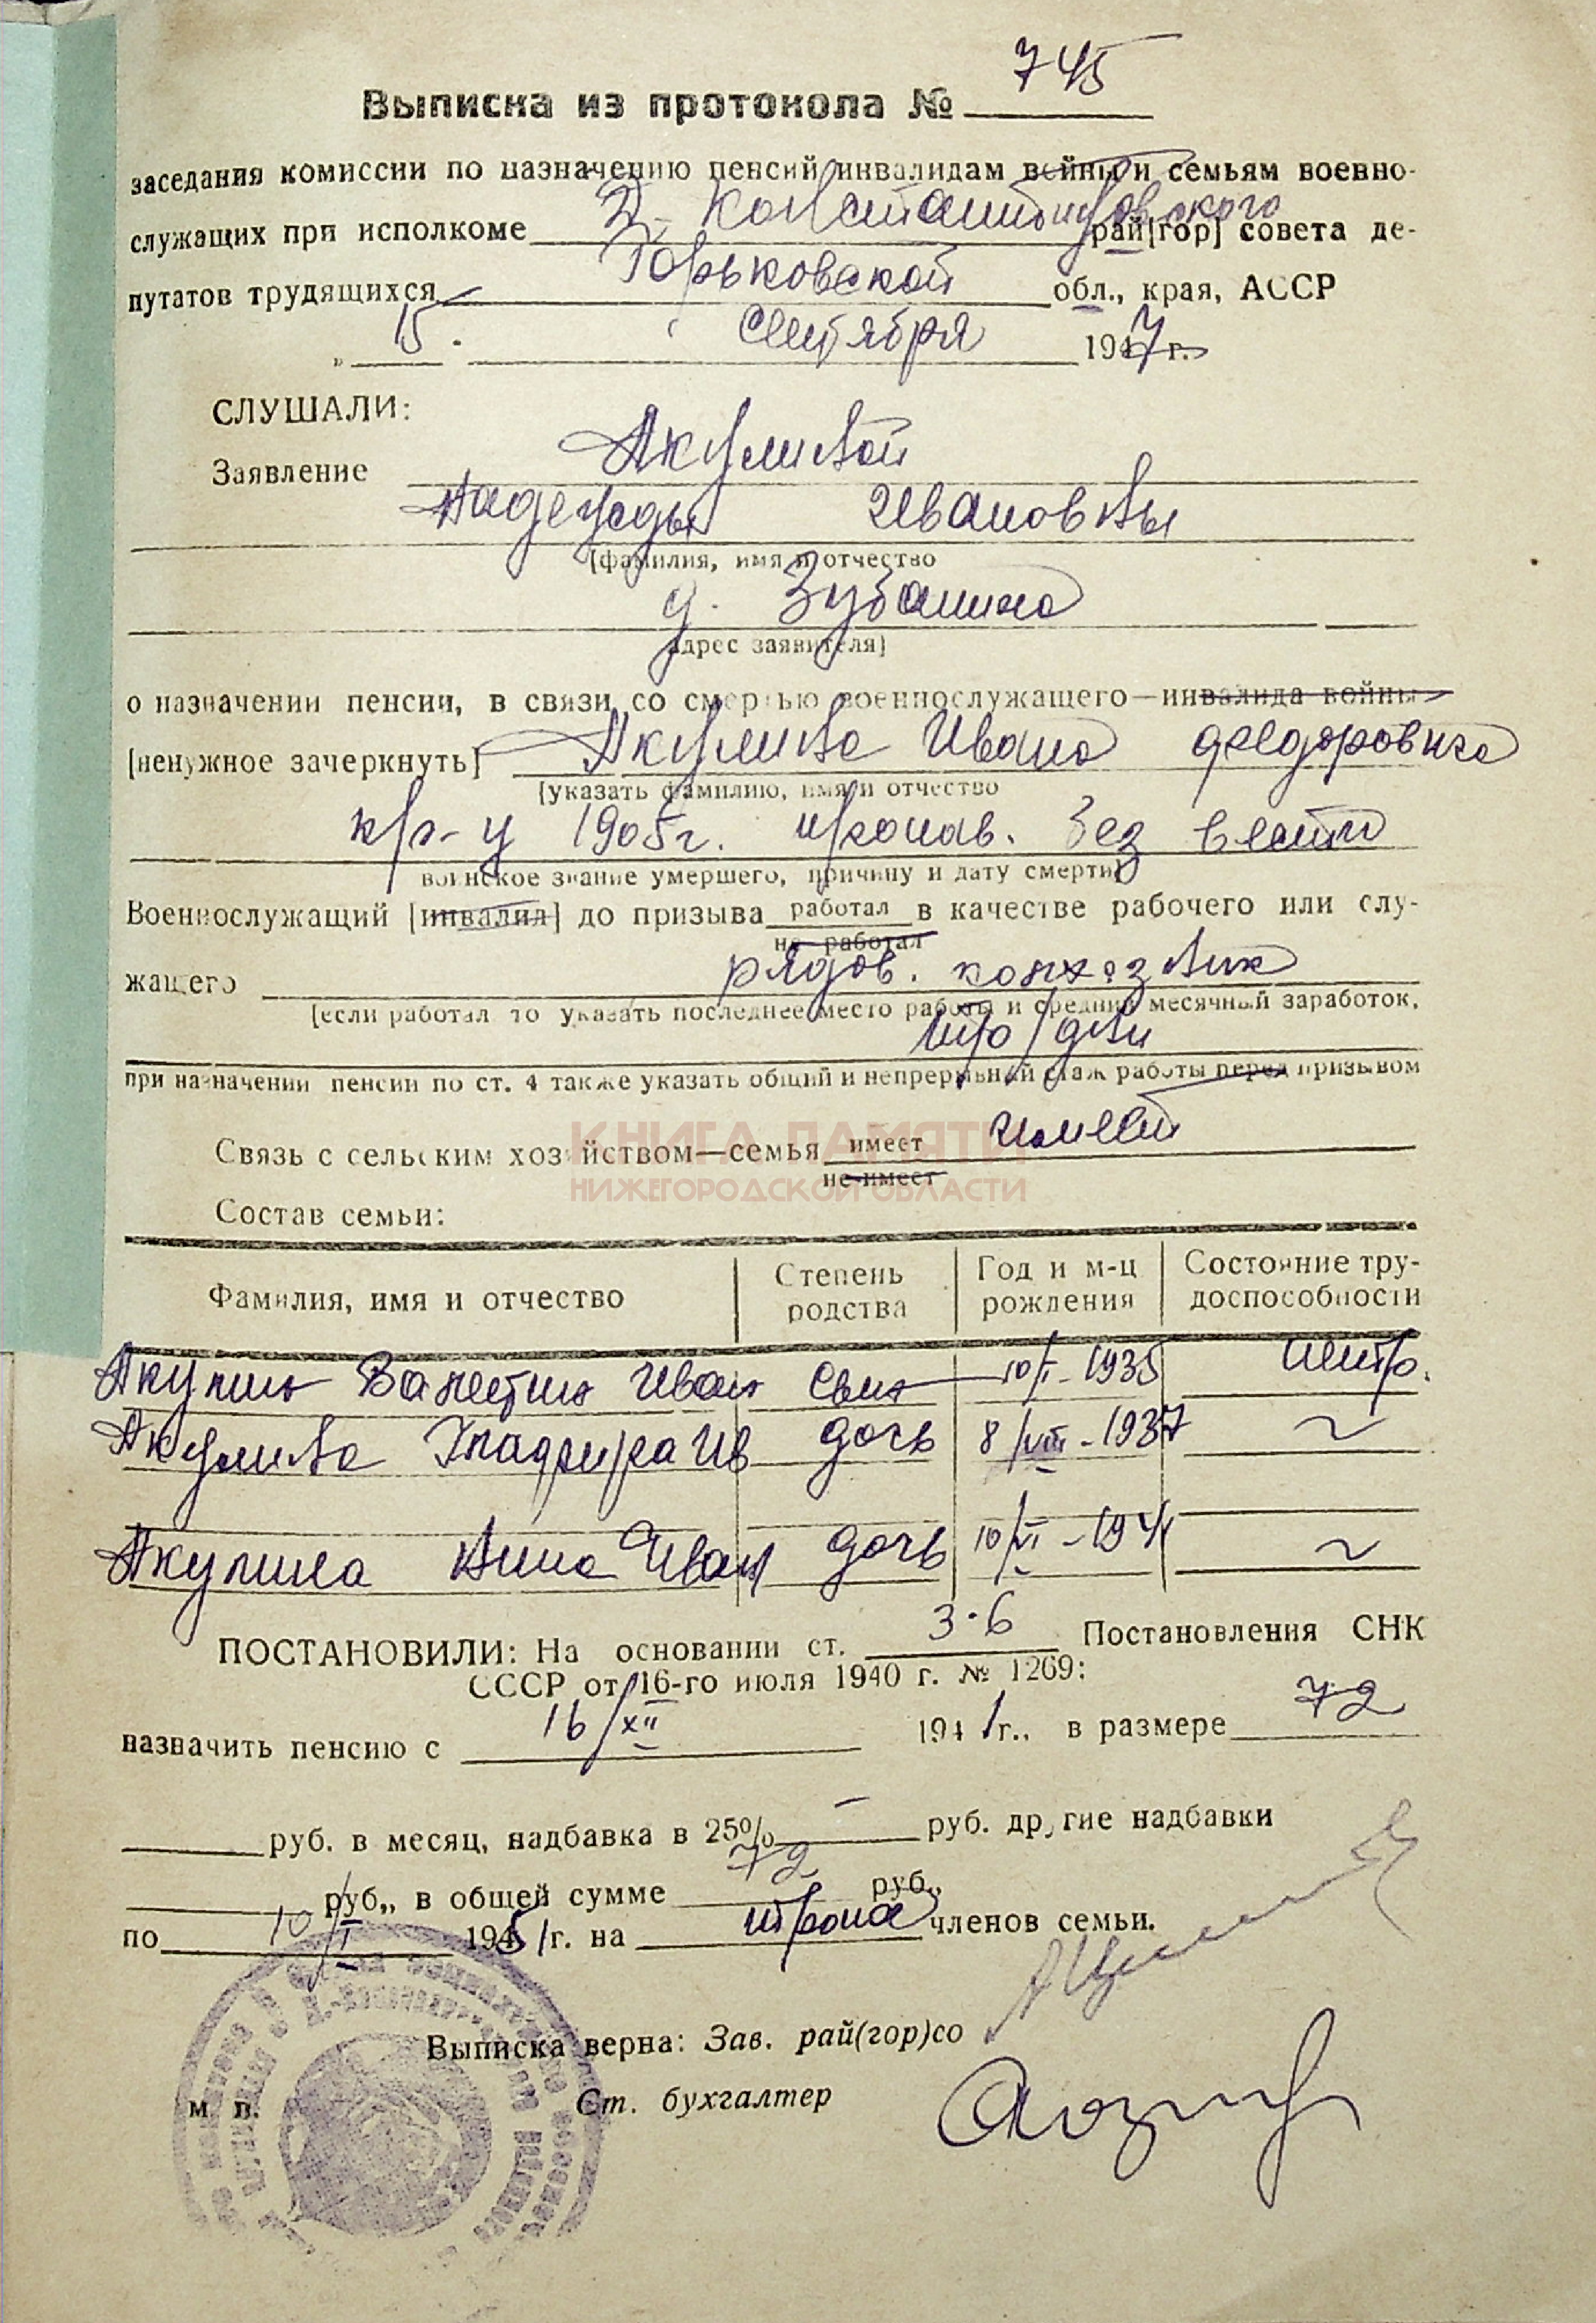 Выписка из протокола № 745
заседания комиссии по назначению пенсий инвалидам войны и семьям военно-
служащих при исполкоме Д-Константиновского рай[гор] совета де-
путатов трудящихся Горьковской обл., края, АССР
„ 15 " сентября 1947 г.
СЛУШАЛИ:
Заявление Акулиной
Надежды Ивановны
[фамилия, имя и отчество
д. Зубанино
адрес заявителя]
о назначении пенсии, в связи со смертью военнослужащего—инвалида войны
[ненужное зачеркнуть] Акулина Ивана Федоровича
[указать фамилию, имя и отчество
кр-ц 1905 г. пропав. без вести
воинское звание умершего, причину и дату смерти]
Военнослужащий [инвалид] до призыва работал в качестве рабочего или слу-
не работал
жащего рядов. колхозник
[если работал то указать последнее место работы и средний месячный заработок,
тр/дни
при назначении пенсии по ст. 4 также указать общий и непрерывный стаж работы перед призывом
КНИГА ПАМЯТИ
НИЖЕГОРОДСКОЙ ОБЛАСТИ
Связь с сельским хозяйством—семья имеет имеет
не имеет
Состав семьи:
Фамилия, имя и отчество Степень родства Год и м-ц рождения Состояние тру-доспособности
Акулин Валентин Иван сын 10/I-1935 нетр.
Акулина Гладфира Ив дочь 8/VIII-1937 ~
Акулина Анна Иван дочь 10/VI-1941 ~
ПОСТАНОВИЛИ: На основании ст. 3-6 Постановления СНК
СССР от 16-го июля 1940 г. № 1269:
назначить пенсию с 16/XII 1941 г., в размере 72
руб. в месяц, надбавка в 25% — руб. другие надбавки
руб., в общей сумме 72 руб.,
по 10/I 1951 г. на троих членов семьи.
Выписка верна: Зав. рай(гор)со
м. п. Ст. бухгалтер